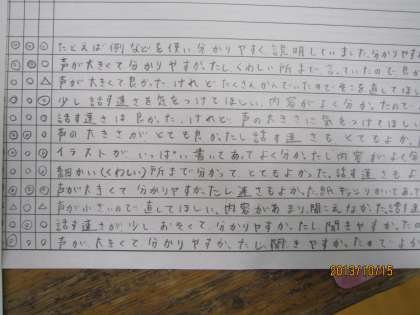 ◎ ○ ◎ たとえば例などを使い、分かりやすく説明していました。分かりやす
声が大きくて分かりやすかったし、くわしい所まで言っていたので良
声が大きくて良かったけれどたくさんかんでいたのでそこを直してほし
少し話す速さを気をつけてほしい。内容がよく分かったので
話す速さは良かったけれど声の大きさに気をつけてほし
声の大きさがとても良かったし話す速さもとてもよか
イラストがいっぱい書いてあってよく分かったし内容がよく分
細かい(くわしい)所まで分かってとてもよかった。話す速さもよ
声が大きくて分かりやすかったし速さもよかった。
声が小さいので直してほしい。内容があまり聞こえなかった。話す速
話す速さが少しおそくて、分かりやすかったし聞きやすかったの
声が大きくて分かりやすかったし、聞きやすかったのでよか
2013/10/15